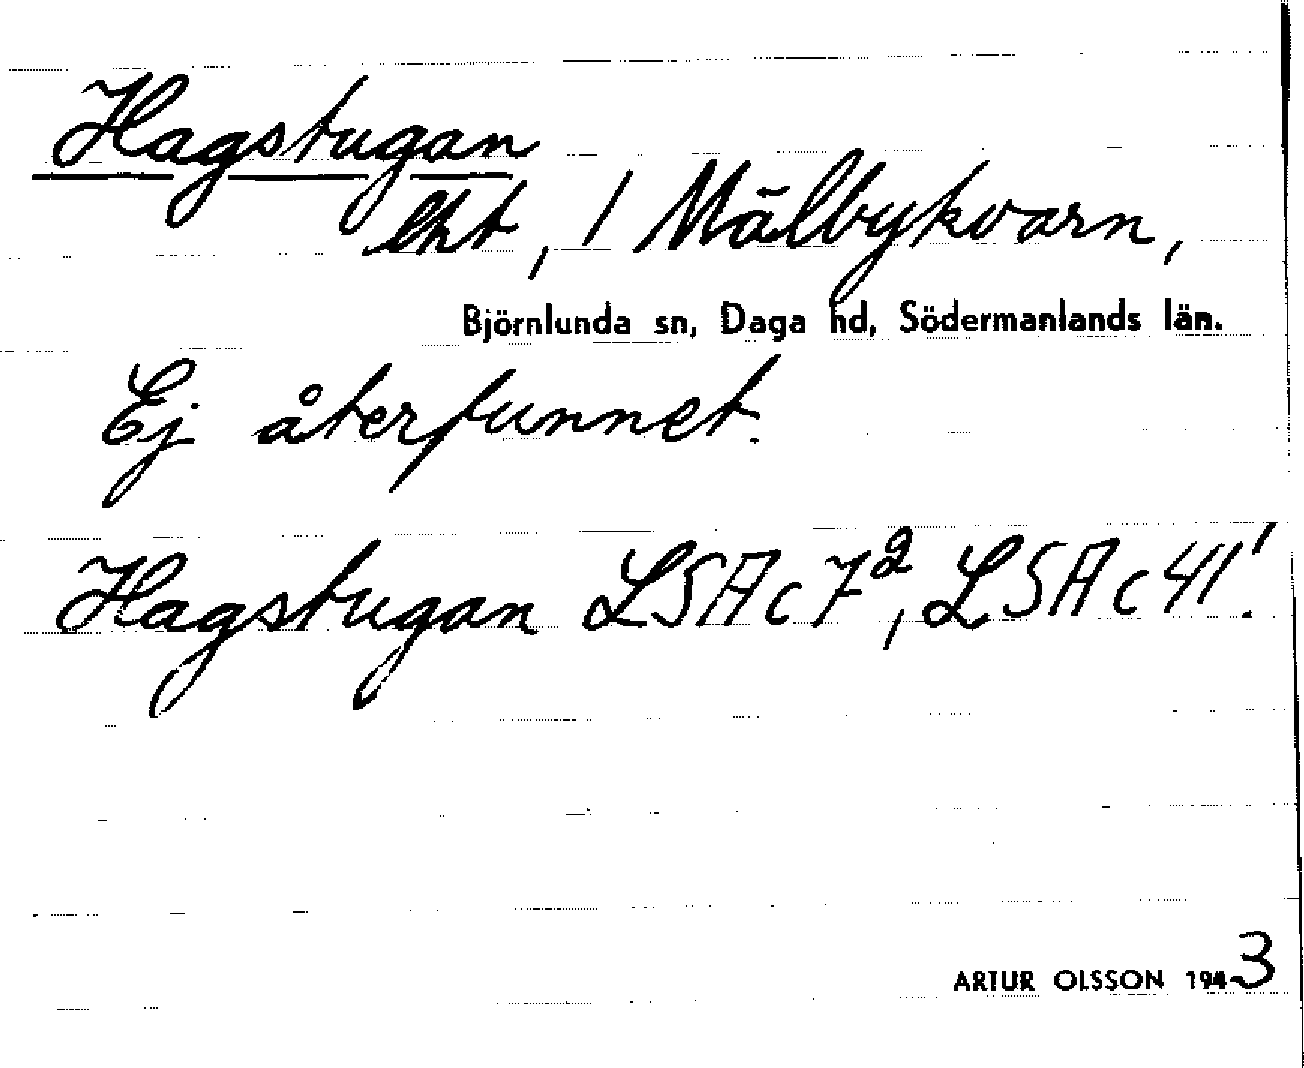 Hagstugan
lht, / Mälbykvarn,
Björnlunda sn, Daga hd, Södermanlands län.
Ej återfunnet.
Hagstugan LSAc7², LSAc41!
ARTUR OLSSON 1943